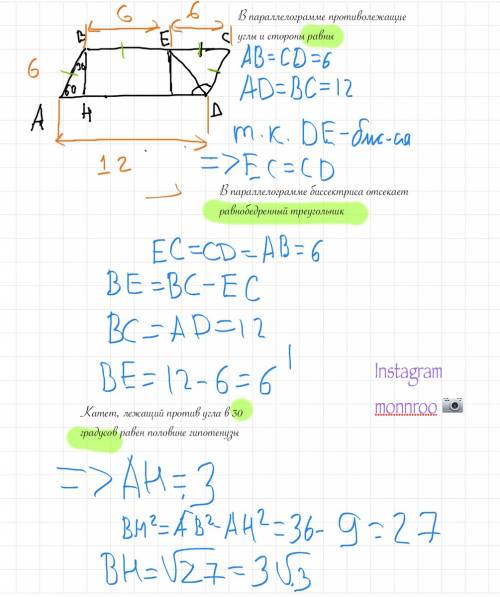 6 6
В параллелограмме противолежащие
углы и стороны равны
B E C
6
AB=CD=6
30
60
AD=BC=12
A H D
т.к. DE-бис-са
12
=>EC=CD
В параллелограмме биссектриса отсекает
равнобедренный треугольник
EC=CD=AB=6
BE=BC-EC
BC=AD=12
BE=12-6=6
Instagram
monnroo
Катет, лежащий против угла в 30
градусов равен половине гипотенузы
=>AH=3
BH²=AB²-AH²=36-9=27
BH=√27=3√3